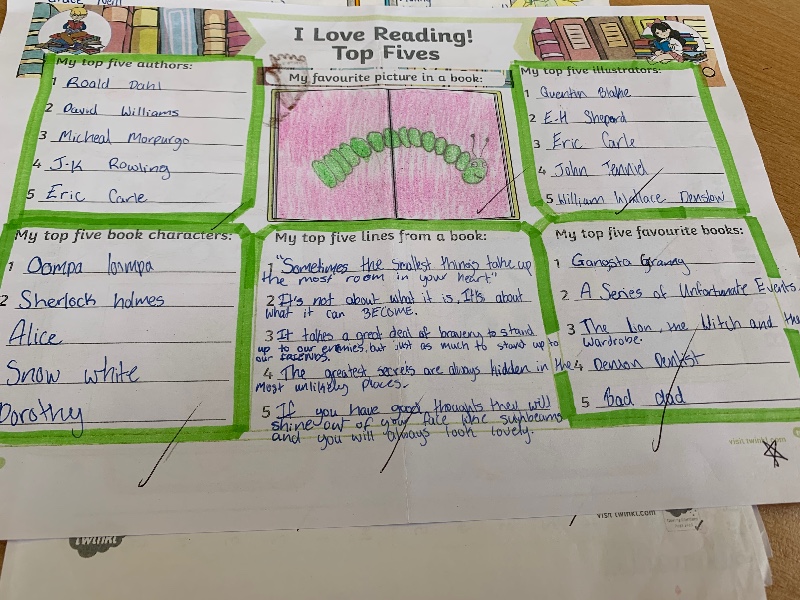 I Love Reading!
Top Fives
My top five authors:
1 Roald Dahl
2 David Williams
3 Micheal Morpurgo
4 J-K Rowling
5 Eric Carle
My favourite picture in a book:
My top five illustrators:
1 Quentin Blake
2 E-H Sheperd
3 Eric Carle
4 John Tenniel
5 William Wallace Denslow
My top five book characters:
1 Oompa loompa
2 Sherlock holmes
Alice
Snow white
Dorothy
My top five lines from a book:
1 "Sometimes the smallest things take up
the most room in your heart"
2 It's not about what it is, It's about
what it can BECOME.
3 It takes a great deal of bravery to stand
up to our enemies, but just as much to stand up to
our friends.
4 The greatest secrets are always hidden in the
most unlikely places.
5 If you have good thoughts they will
shine out of your face like sunbeams
and you will always look lovely.
My top five favourite books:
1 Gangsta Granny
2 A Series of Unfortunate Events.
3 The lion, the Witch and the
Wardrobe.
4 Demon Dentist
5 Bad dad
visit twinkl.com
visit twinkl.com
twinkl